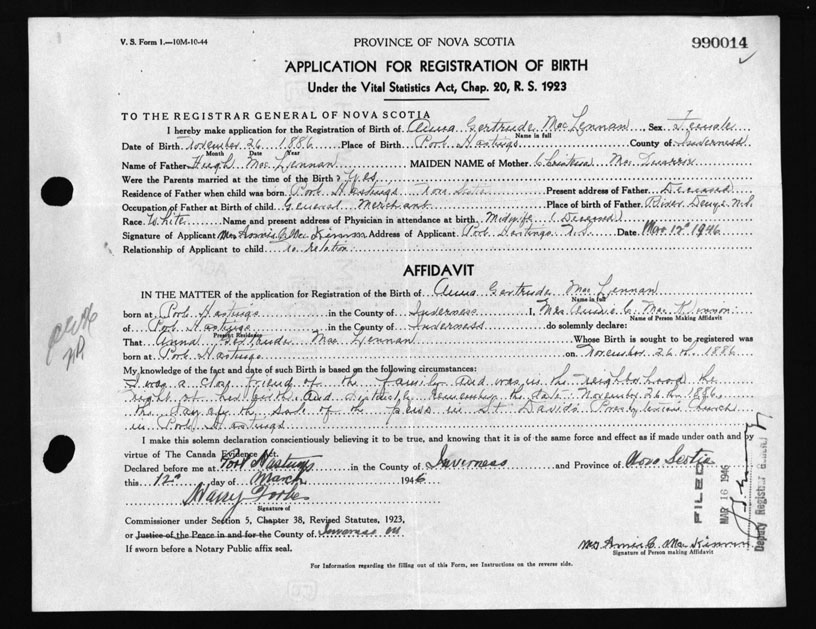 V. S. Form 1.—10M-10-44
PROVINCE OF NOVA SCOTIA
990014
APPLICATION FOR REGISTRATION OF BIRTH
Under the Vital Statistics Act, Chap. 20, R. S. 1923
TO THE REGISTRAR GENERAL OF NOVA SCOTIA
I hereby make application for the Registration of Birth of Anna Gertrude MacLennan Sex Female
Name in full
Date of Birth November 26 1886 Place of Birth Port Hastings County of Inverness
Month Date Year
Name of Father Hugh Mac Lennan MAIDEN NAME of Mother Christina Mc
Were the Parents married at the time of the Birth? Yes
Residence of Father when child was born Port Hastings Present address of Father Deceased
Occupation of Father at Birth of child General Merchant Place of birth of Father River Denys N.S.
Race White Name and present address of Physician in attendance at birth Midwife (Deceased)
Signature of Applicant Mrs Annie C Mac Kinnon Address of Applicant Port Hastings N.S. Date Mar 12 1946
Relationship of Applicant to child no relation
AFFIDAVIT
IN THE MATTER of the application for Registration of the Birth of Anna Gertrude Mac Lennan
Name in full
born at Port Hastings in the County of Inverness I, Mrs Annie C. Mac Kinnon
Name of Person Making Affidavit
of Port Hastings in the County of Inverness do solemnly declare:
Present Residence
That Anna Gertrude Mac Lennan Whose Birth is sought to be registered was
born at Port Hastings on November 26th 1886
My knowledge of the fact and date of such Birth is based on the following circumstances:
I was a close friend of the family and was in the neighborhood the
night of her birth and distinctly remember the date November 26th 1886
the day of the sale of the pews in St David's Presbyterian Church
in Port Hastings
I make this solemn declaration conscientiously believing it to be true, and knowing that it is of the same force and effect as if made under oath and by
virtue of The Canada Evidence Act.
Declared before me at Port Hastings in the County of Inverness and Province of Nova Scotia
this 12 day of March 1946
Harry Forbes
Signature of
Commissioner under Section 5, Chapter 38, Revised Statutes, 1923,
or Justice of the Peace in and for the County of Inverness
If sworn before a Notary Public affix seal.
FILED
MAR 16 1946
Deputy Registrar General
Mrs Annie C. Mac Kinnon
Signature of Person making Affidavit
For Information regarding the filling out of this Form, see Instructions on the reverse side.